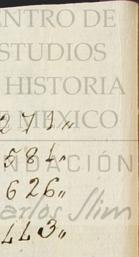 NTRO DE
STUDIOS
HISTORIA
MEXICO
271,,
584,,
NDACIÓN
626,,
arlos Slim
443,,